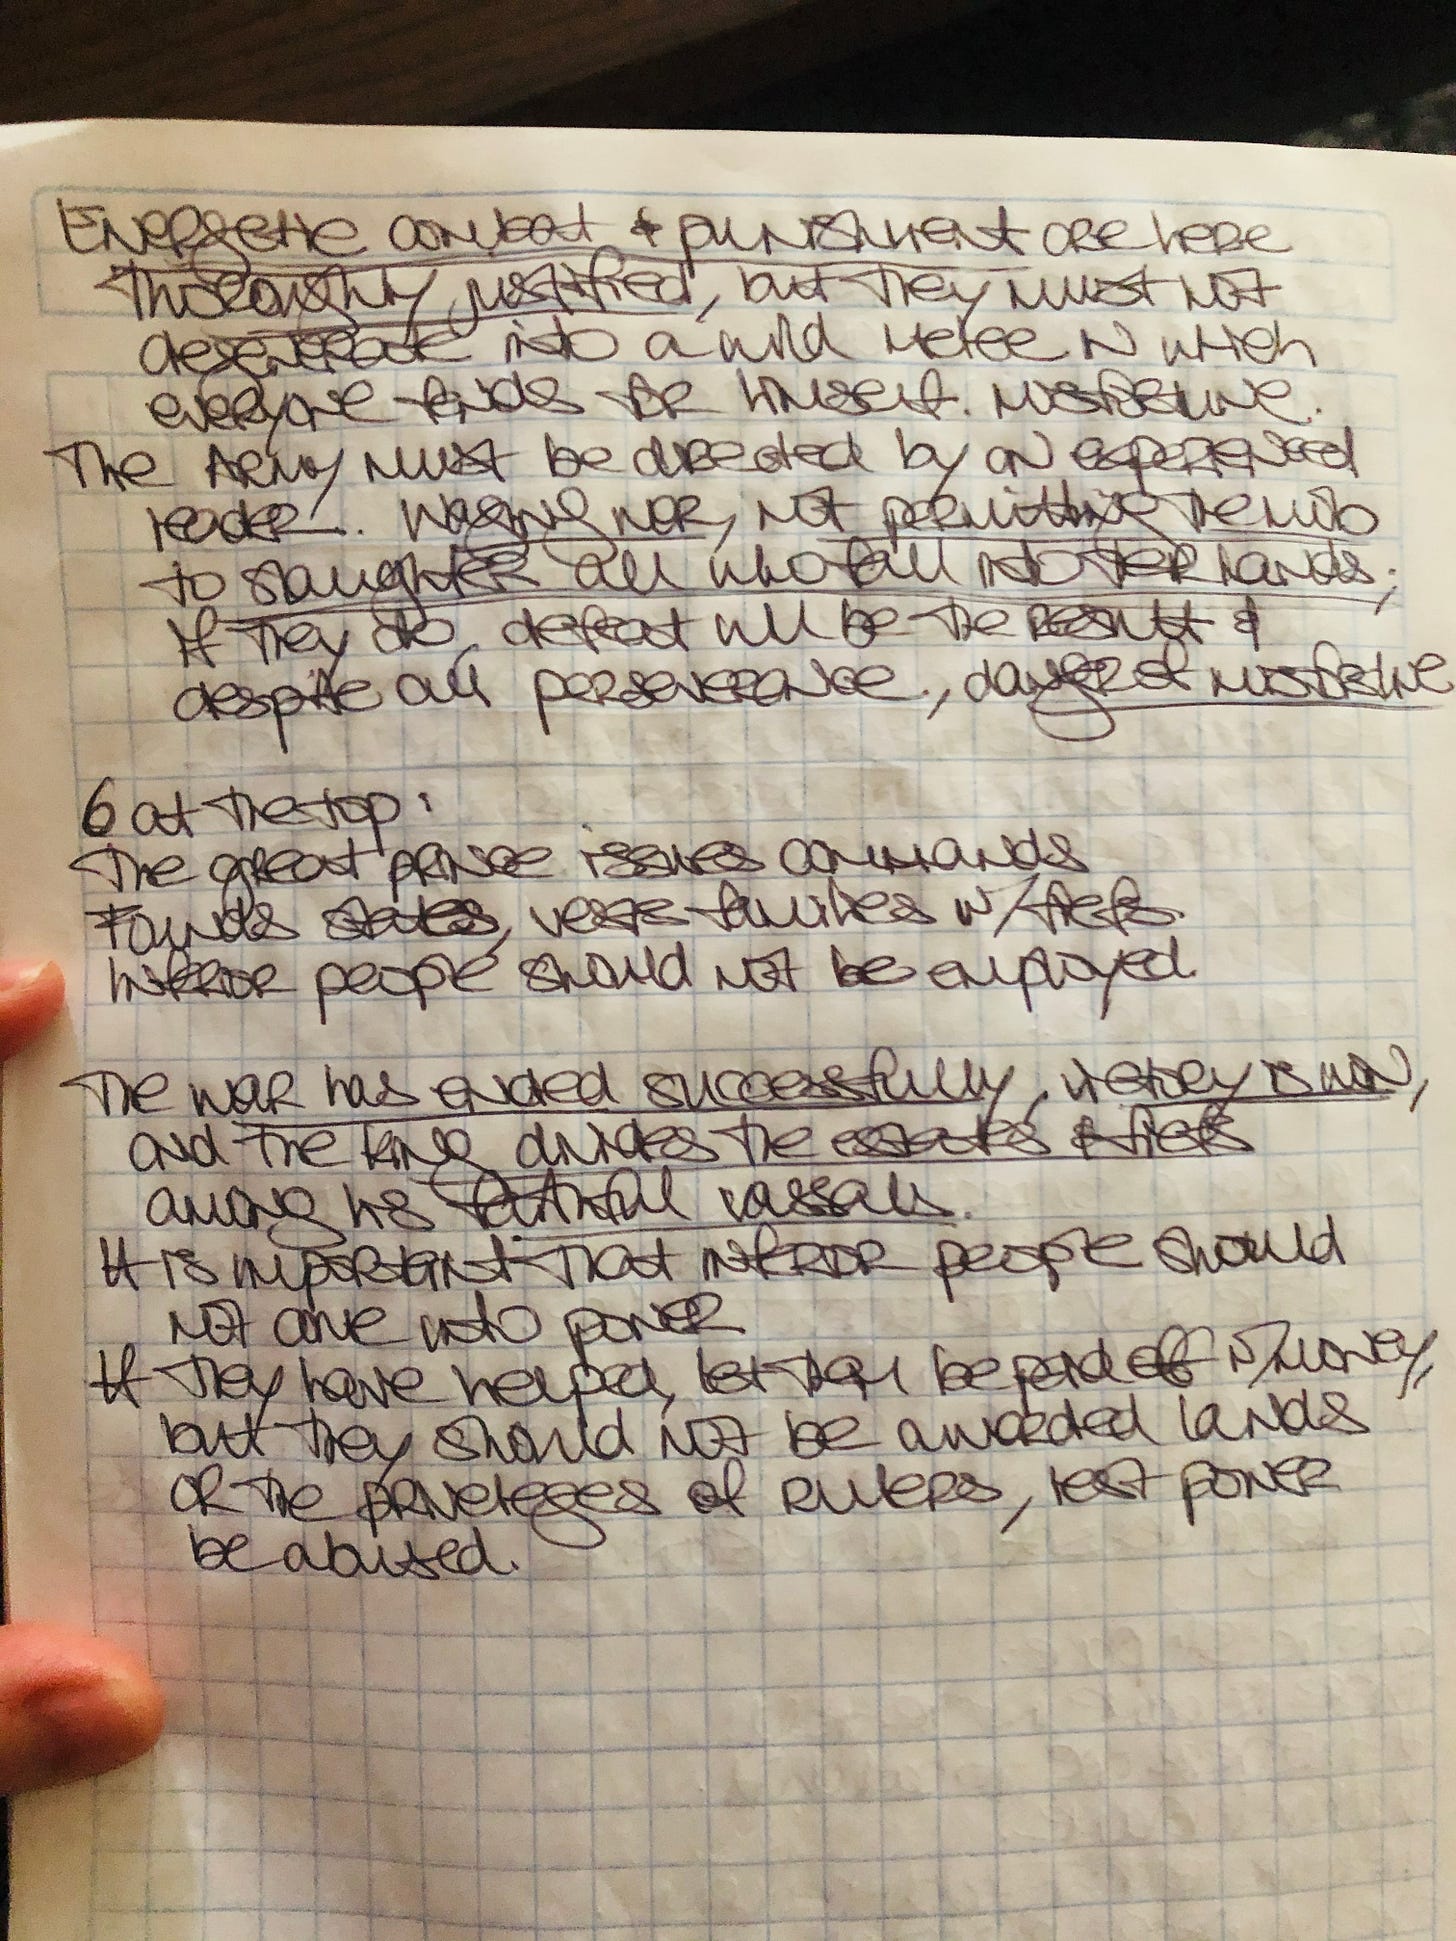 Energetic combat & punishment are here
thoroughly justified, but they must not
degenerate into a wild melee in which
everyone fends for himself. misfortune.
The Army must be directed by an experienced
leader. Waging war, not permitting the mob
to slaughter all who fall into their hands;
If they do, defeat will be the result &
despite all perseverance, danger of misfortune
6 at the top:
The great prince issues commands
Founds states, vests families w/ fiefs.
Inferior people should not be employed.
The war has ended successfully, victory is won,
and the king divides the estates & fiefs
among his faithful vassals.
It is important that inferior people should
not come into power
If they have helped, let them be paid off w/ money,
but they should not be awarded lands
or the priveleges of rulers, lest power
be abused.